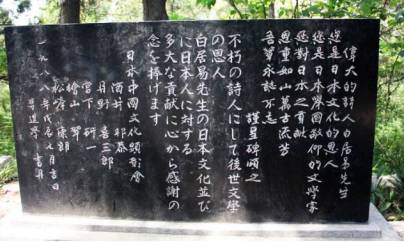 偉大的詩人白居易先生
您是日本文化的恩人
您是日本舉國敬仰的文學家
您對日本之貢献
恩重如山萬古流芳
吾輩永誌不忘
謹呈碑頌之
不朽の詩人にして後世文學
の恩人
白居易先生の日本文化並び
に日本人に対する
多大な貢献に心から感謝の
念を捧げます
日本中國文化顕彰會
酒井
喜三郎
宮下 研一
檜山
松
一九八八年戊辰七月吉日